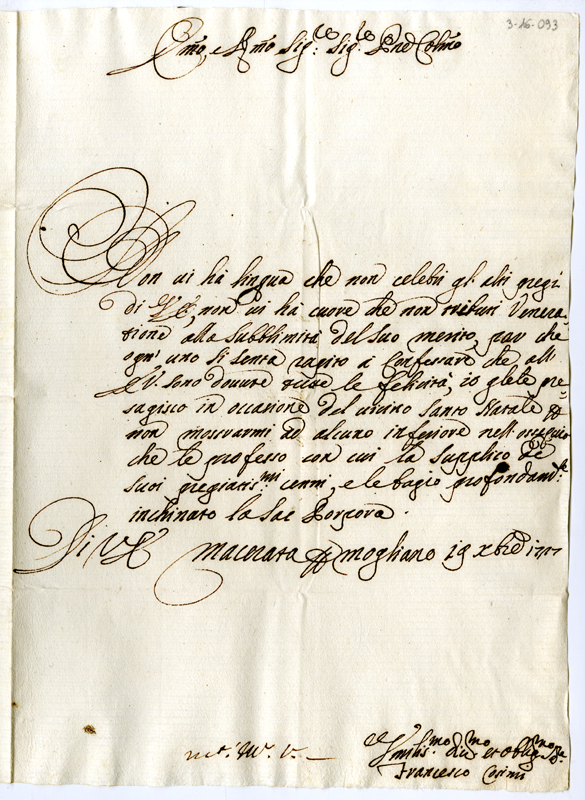 3-16-093
Emo, e Rmo Sig:re Sig:re Pne Colmo
Non ui hà lingua che non celebri gl'alti pregi
di V.E., non ui hà cuore che non tributi Venera-
tione alla Subblimità del suo merito, par che
ogn'uno si senta rapito à Confessare che all'
E.V. sono douute tutte le felicità, io glele pre-
sagisco in occasione del uicino Santo Natale p
non mostrarmi ad alcuno inferiore nell'ossequio
che le professo con cui la supplico de
suoi pregiatis:mi cenni, e le bagio profondam:te
inchinato la Sac Porpora.
Di V.E. Macerata p Mogliano 19 Xbre 1717
Humilis:mo Diuo:mo et Oblig:mo Se:
Francesco